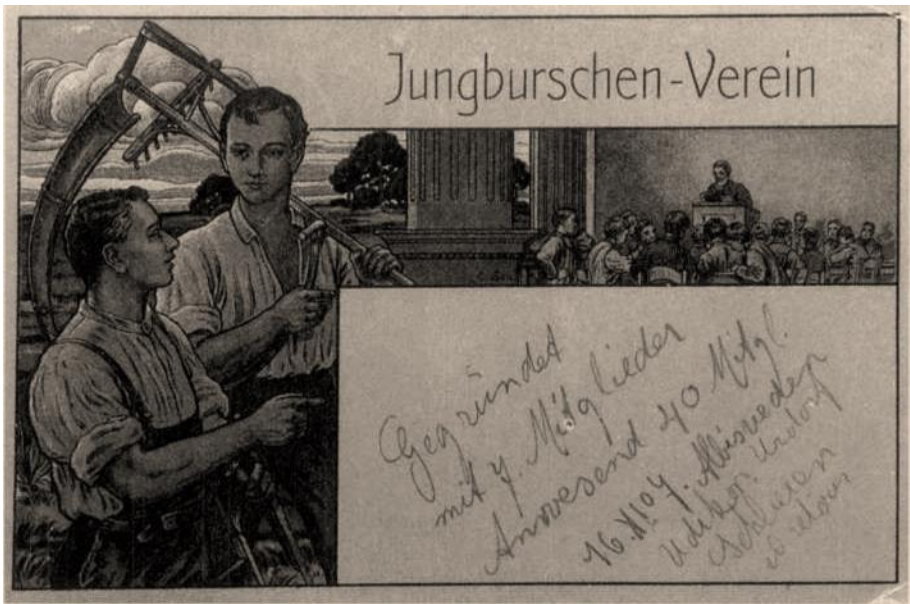 Jungburschen-Verein
Gegründet
mit 7. Mitglieder
Anwesend 40 Mitgl.
16. XI 07. Albisrieden
Urdorf
Schlieren